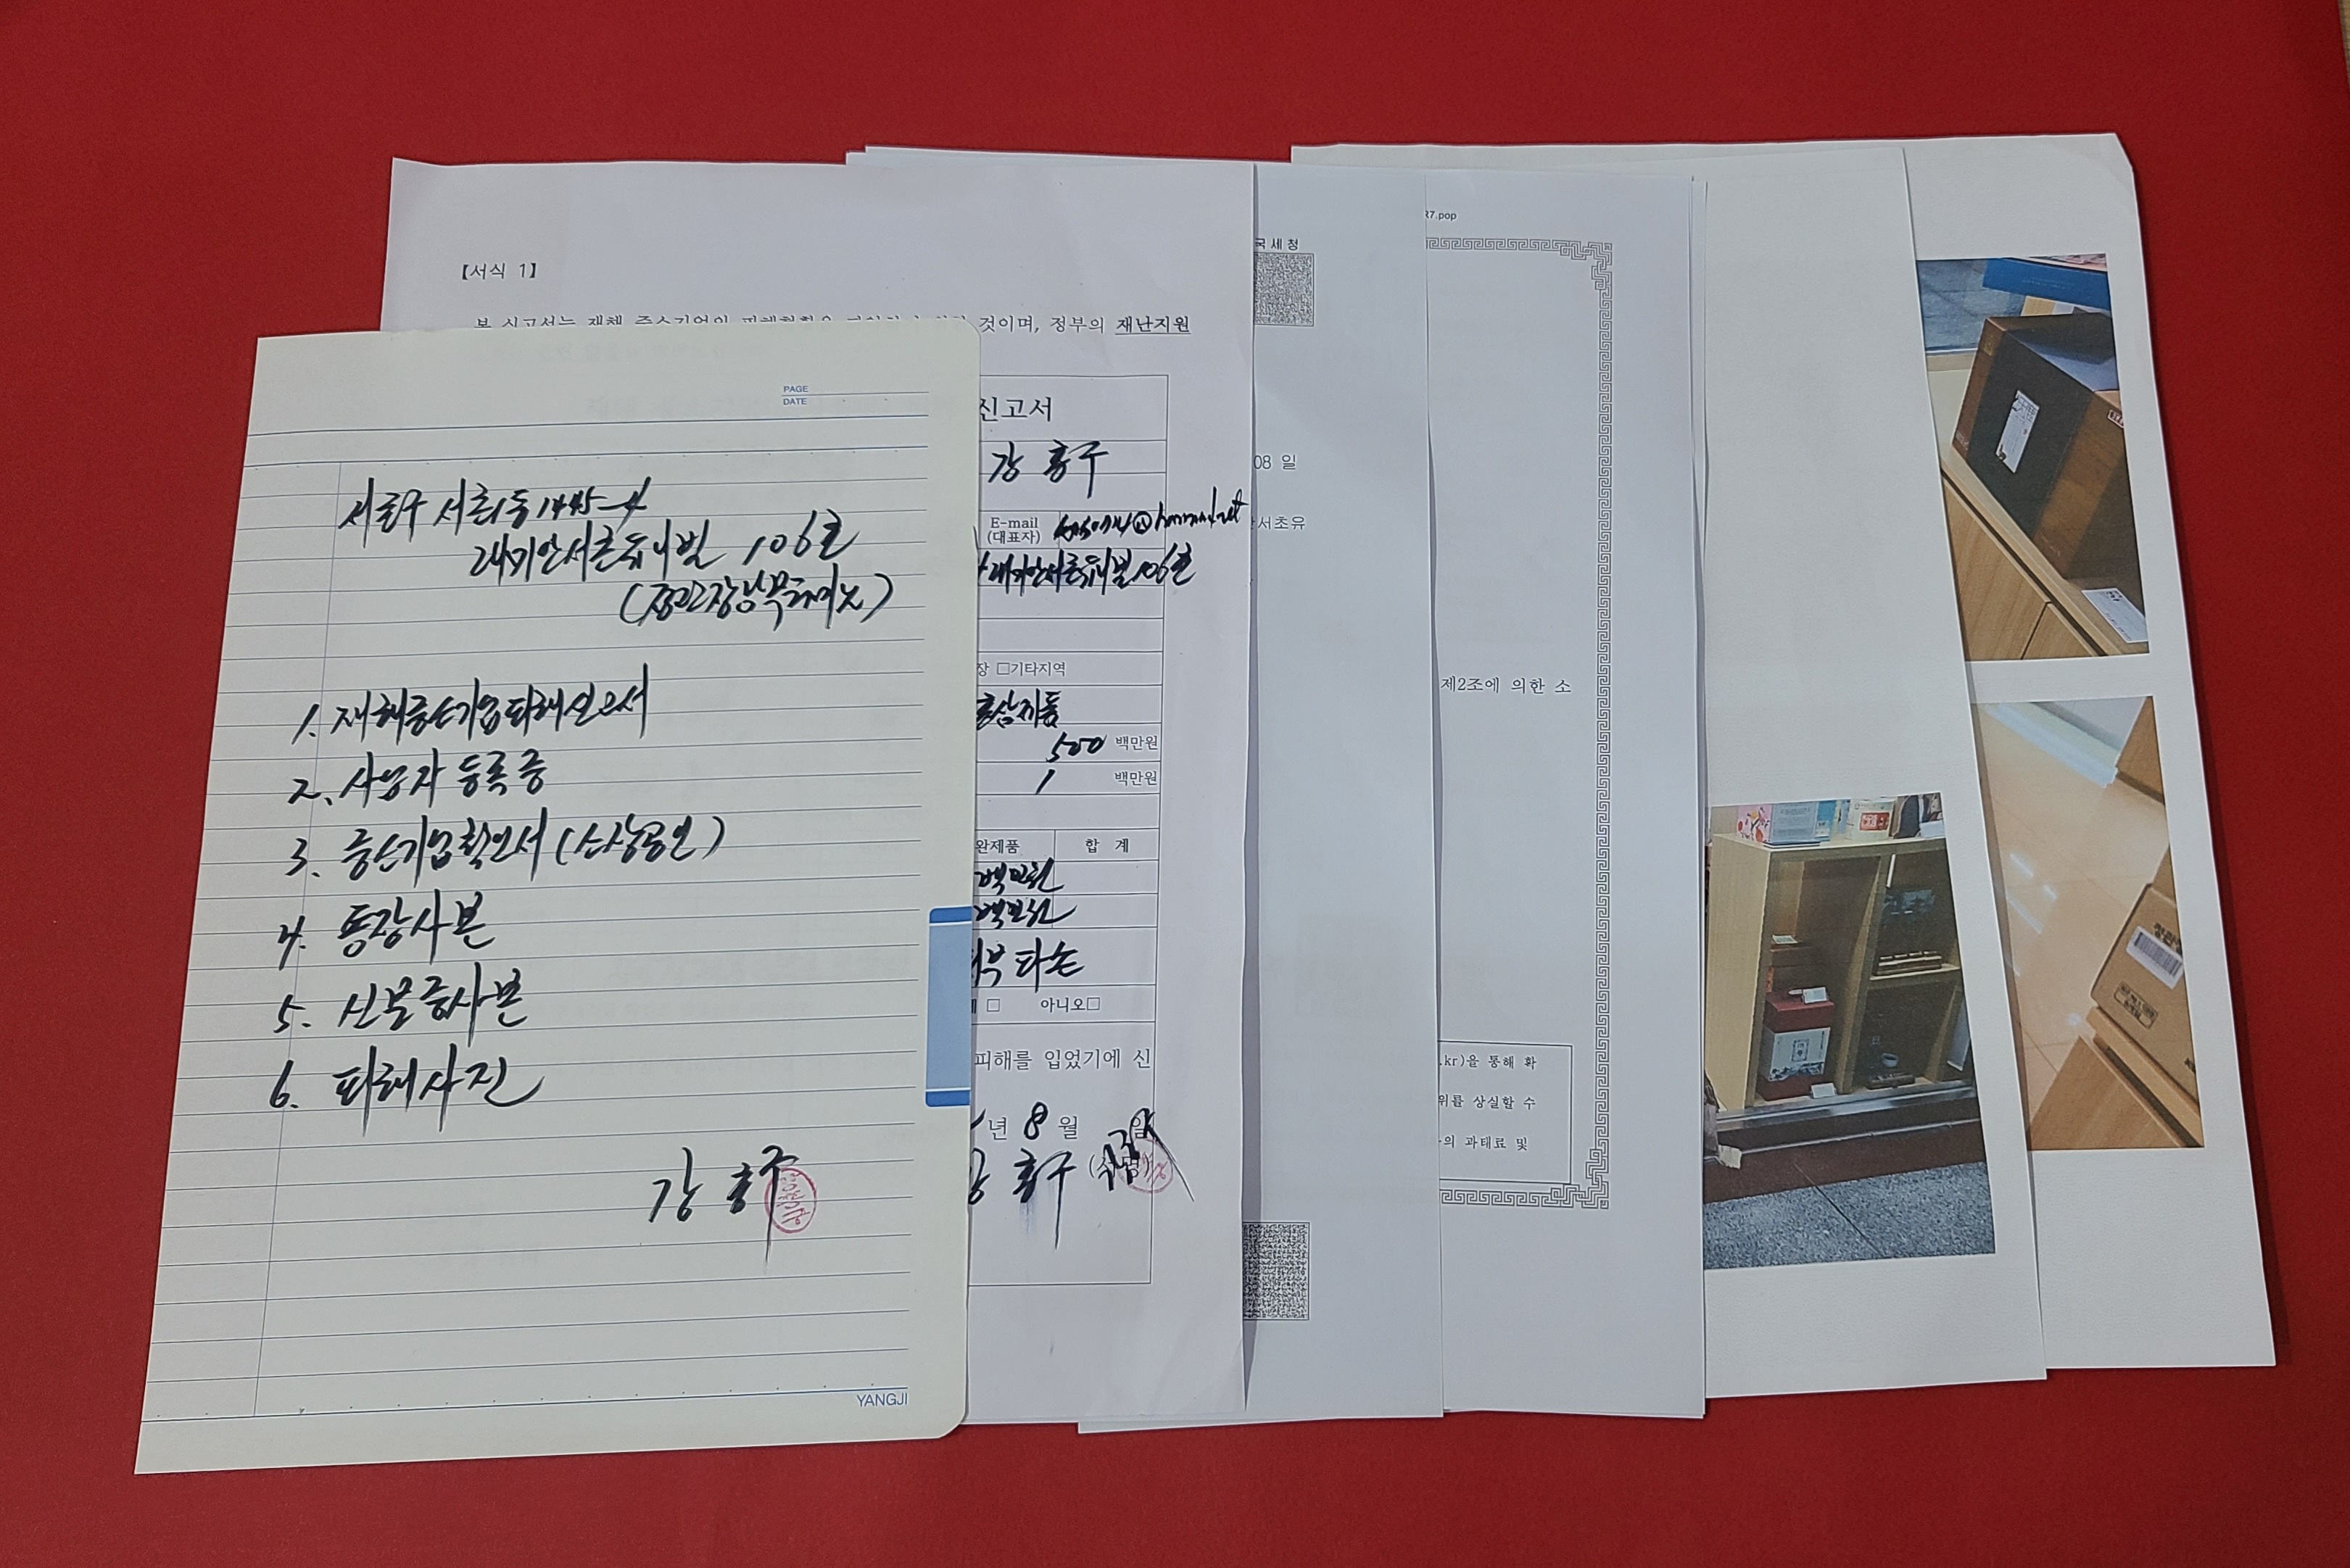 PAGE
DATE
서초구 서초1동 1445-4
래미안서초유니빌 106호
(정관장남부터미널)
1. 재해중소기업피해신고서
2. 사업자 등록증
3. 중소기업확인서 (소상공인)
4. 통장사본
5. 신분증사본
6. 피해사진
강 흥구
YANGJI
【서식 1】
것이며, 정부의 재난지원
신고서
강 흥구
E-mail
(대표자)
래미안서초유니빌 106호
□기타지역
홍삼제품
500 백만원
1 백만원
완제품 합 계
백만원
백만원
파손
□ 아니오□
피해를 입었기에 신
년 8월
강 흥구
국세청
08 일
서초유
R7.pop
제2조에 의한 소
.kr)을 통해 확
위를 상실할 수
의 과태료 및
정관장